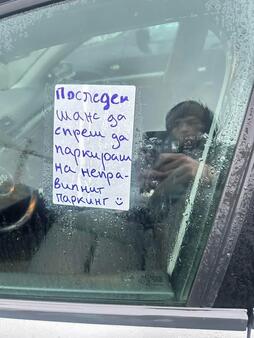 Последен
шанс да
спреш да
паркираш
на непра-
випнит
паркинг ☺